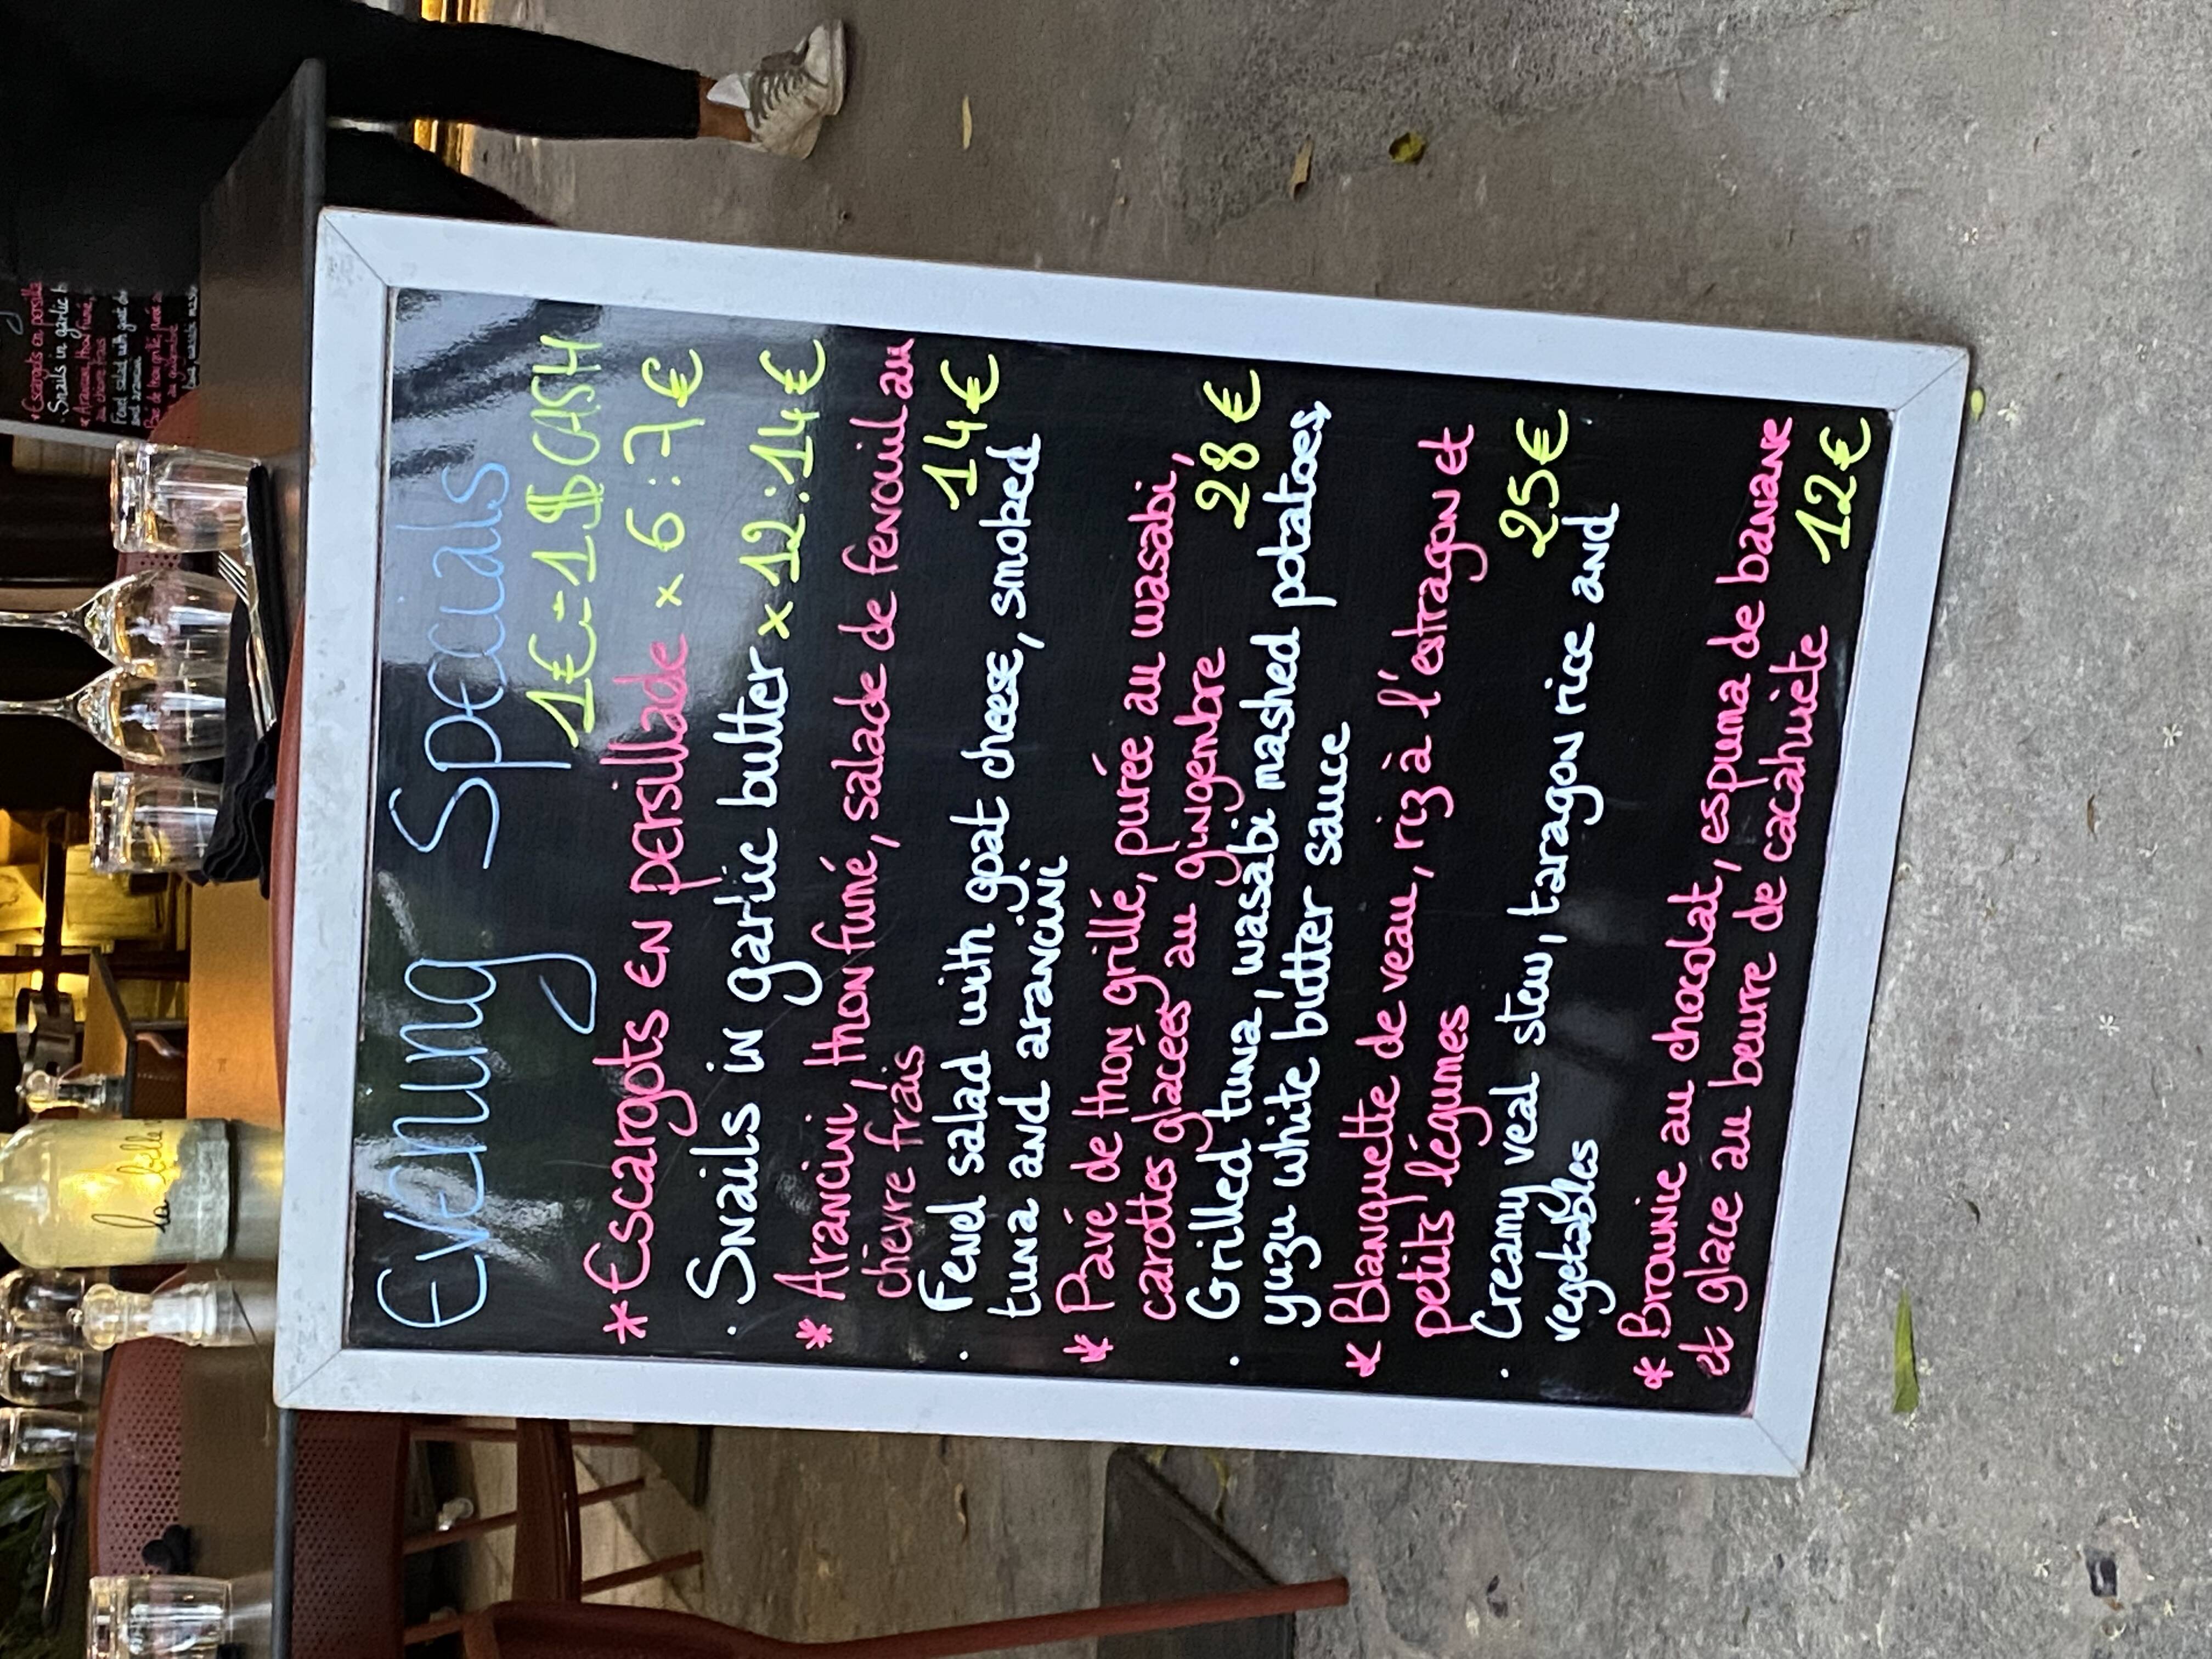 Evening Specials
1€=1$ CASH
* Escargots en persillade x 6 : 7€
. Snails in garlic butter x 12 : 14€
* Arancini, thon fumé, salade de fenouil au
chèvre frais
14€
. Fenel salad with goat cheese, smoked
tuna and arancini
* Pavé de thon grillé, purée au wasabi,
carottes glacées au gingembre
28€
. Grilled tuna, wasabi mashed potatoes,
yuzu white butter sauce
* Blanquette de veau, riz à l'estragon et
petits légumes
25€
. Creamy veal stew, taragon rice and
vegetables
* Brownie au chocolat, espuma de banane
et glace au beurre de cacahuète
12€
la belle
* Escargots en persilla
. Snails in garlic b
* Arancini, thon fumé,
au chèvre frais
Fenel salad with goat che
and arancini